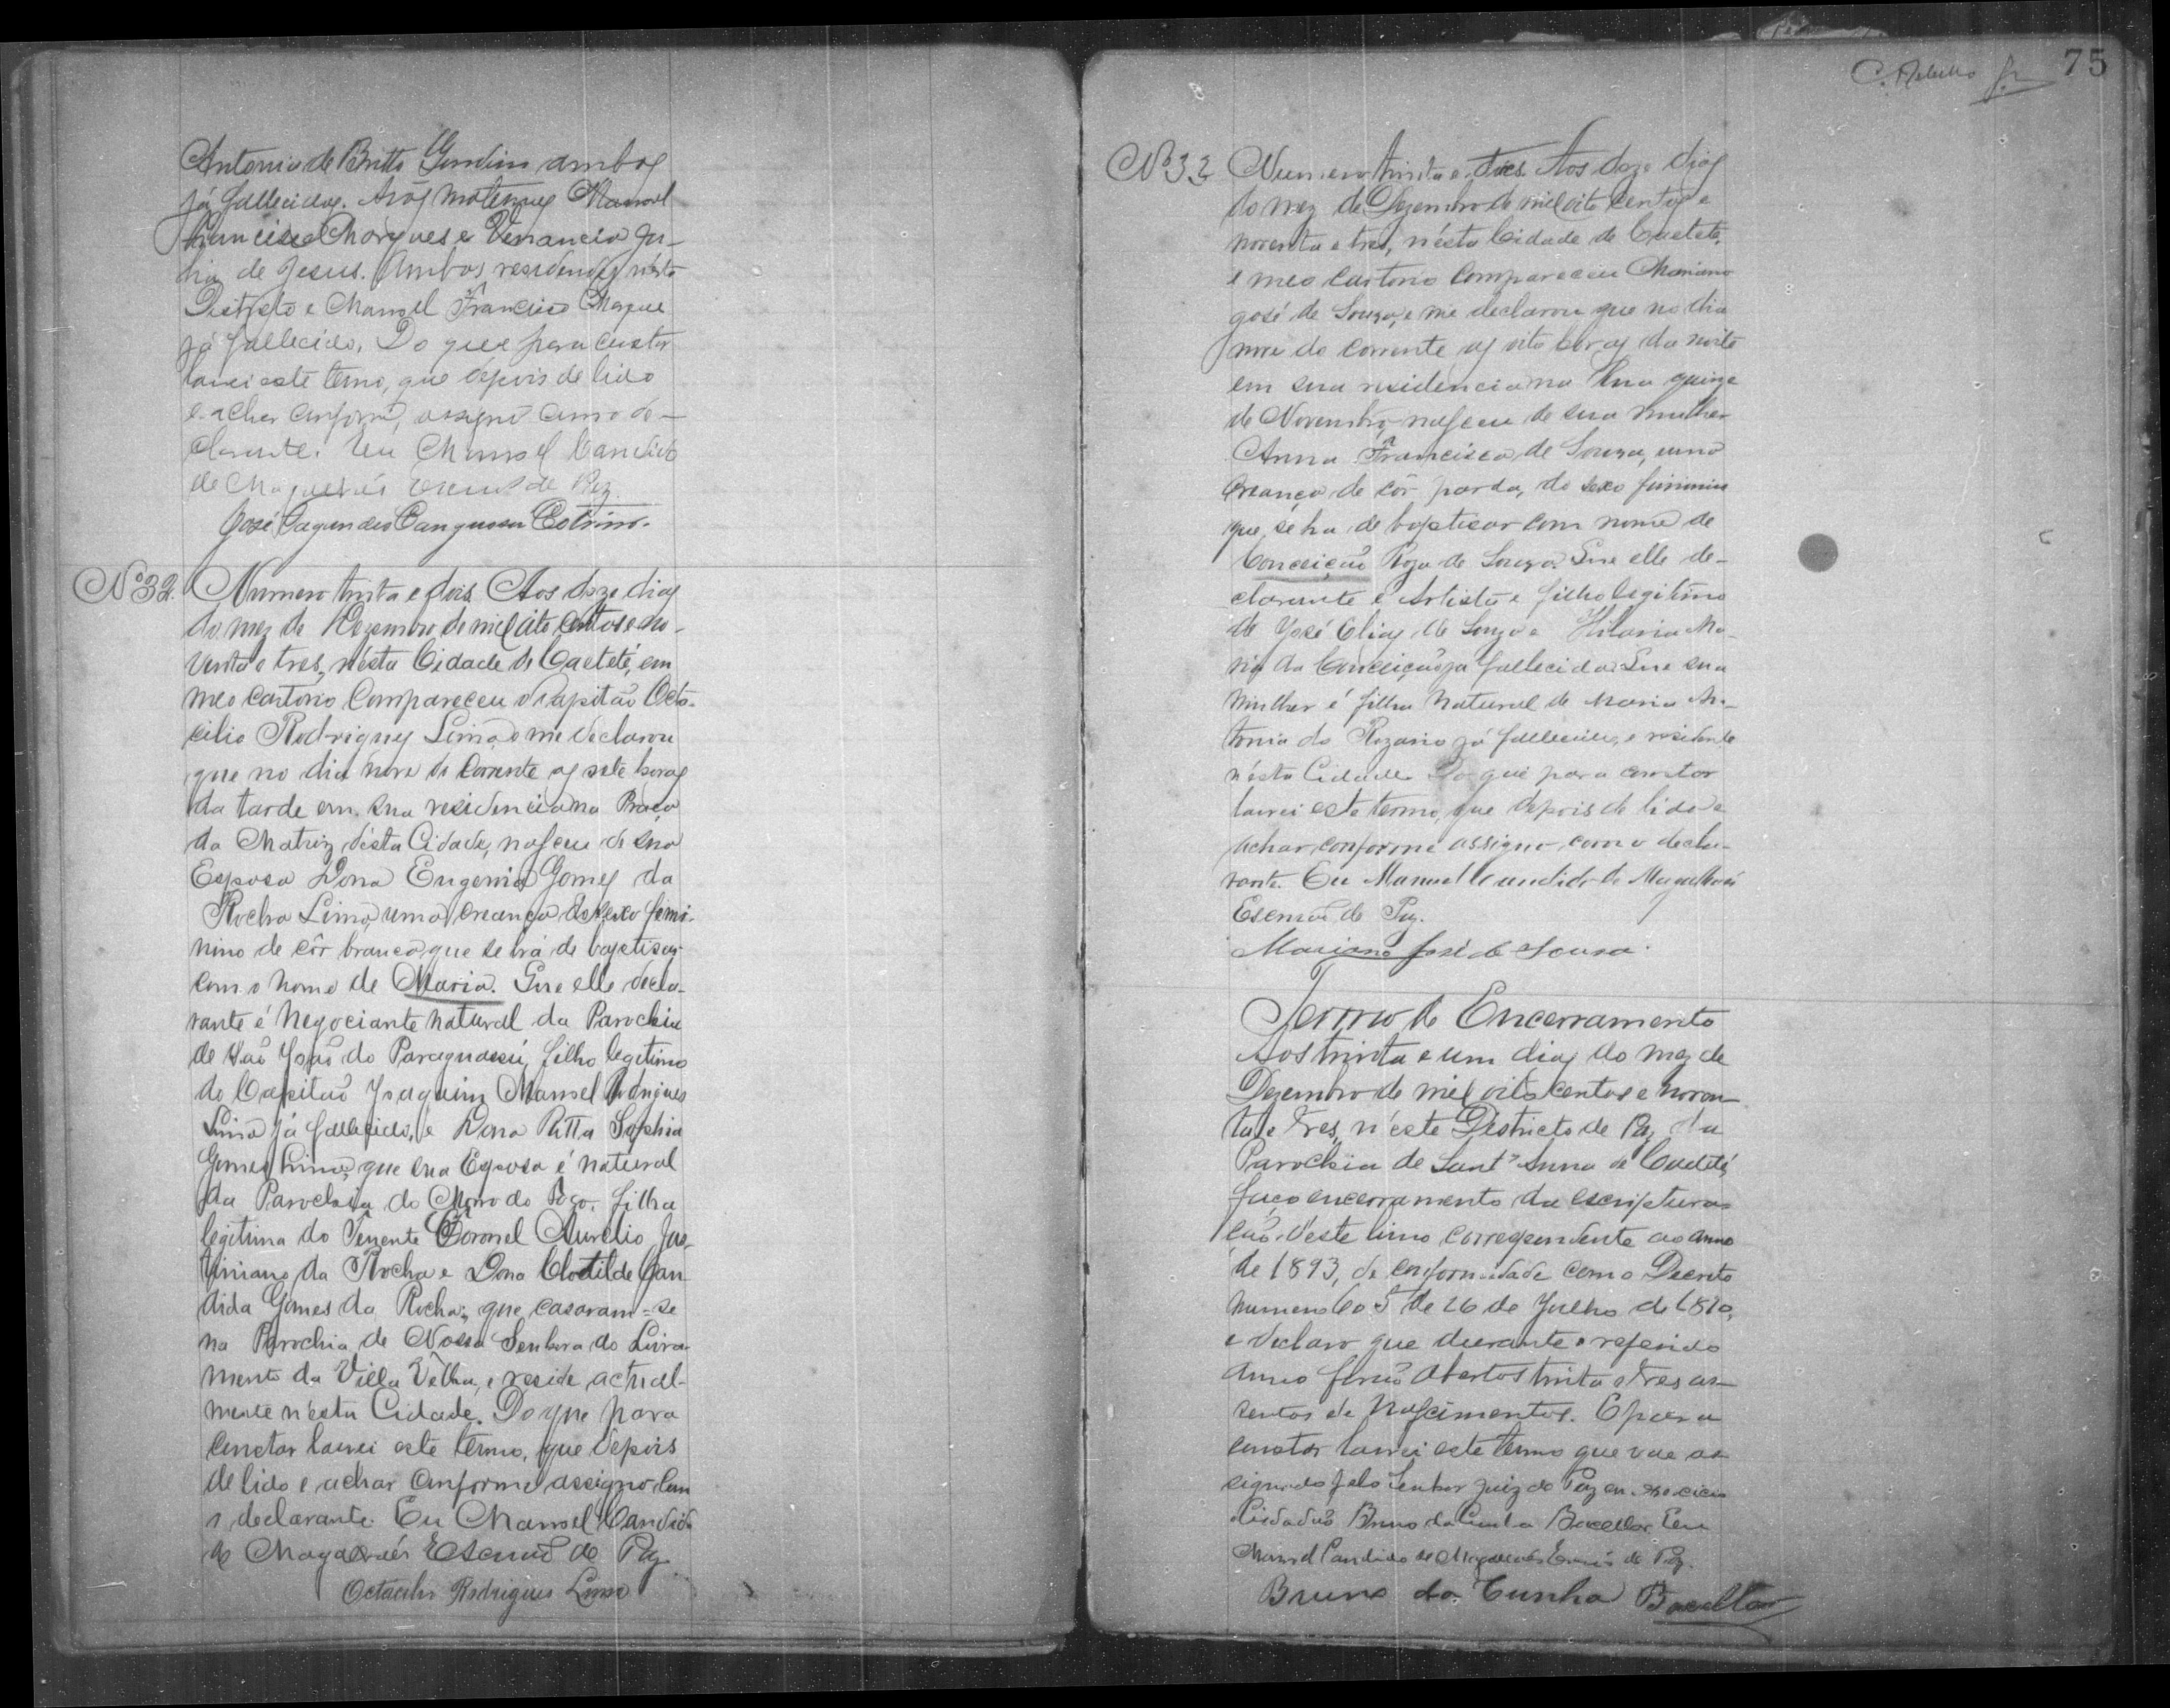 C. Rebello Jr. 75
Antonia de Britto Gondim ambos
já fallecidos. Avós maternos Manoel
Francisco Marques e Venancia Ju-
lia de Jesus. Ambos residentes n'este
Districto e Manoel Francisco Marques
já fallecido. Do que para constar
lavrei este termo, que depois de lido
e achar conforme, assigno com o de-
clarante. Eu Manoel Candido
de Magalhães Escrivão de Paz.
José Fagundes Cangussu Cotrim.
Nº 32. Numero trinta e dois. Aos doze dias
do mez de Dezembro de mil oito centos e no-
venta e tres, n'ésta Cidade de Caeteté, em
meo cartorio Compareceu o Capitão Octa-
cilio Rodrigues Lima, e me declarou
que no dia nove do Corrente as sete horas
da tarde em sua residencia na Praça
da Matriz d'ésta Cidade, nasceu de sua
Esposa Dona Eugenia Gomes da
Rocha Lima, uma creança do sexo femi-
nino de côr branca, que se há de baptisar
com o nome de Maria. Que elle decla-
rante é Negociante natural da Parochia
de São João do Paraguassú, filho legitimo
do Capitão Joaquim Manoel Rodrigues
Lima já fallecido, e Dona Ritta Sophia
Gomes Lima, que sua Esposa é natural
da Parochia do Morro do Fogo, filha
legitima do Tenente Coronel Aurelio Jus-
tiniano da Rocha e Dona Clotilde Can-
dida Gomes da Rocha; que casaram-se
na Parochia de Nossa Senhora do Livra-
mento da Villa Velha, e reside actual-
mente n'ésta Cidade. Do que para
constar lavrei este termo, que depois
de lido e achar conforme assigno com
o declarante. Eu Manoel Candido
de Magalhães Escrivão de Paz.
Octacilio Rodrigues Lima
Nº 33 Numero trinta e tres. Aos doze dias
do mez de Dezembro de mil oito centos e
noventa e tres, n'ésta Cidade de Caeteté,
e meo Cartorio Compareceu Mariano
José de Souza, e me declarou que no dia
nove do corrente as oito horas da noite
em sua residencia na Rua quinze
de Novembro, nasceu de sua mulher
Anna Francisca de Souza, uma
Creança de côr parda, do sexo feminino
que se ha de baptisar com nome de
Conceição Roza de Souza. Que elle de-
clarante é Artista e filho legitimo
de José Elias de Souza e Hilaria Ma-
ria da Conceição já fallecida. Que sua
mulher é filha Natural de Maria An-
tonia do Rozario já fallecida, e residente
n'ésta Cidade. Do que para constar
lavrei este termo, que depois de lido e
achar conforme assigno com o decla-
rante. Eu Manuel Candido de Magalhães
Escrivão de Paz.
Mariano José de Sousa.
Termo de Encerramento
Aos trinta e um dias do mez de
Dezembro de mil oito centos e noven-
ta e tres, n'éste Districto de Paz da
Parochia de Sant'Anna de Caeteté,
faço encerramento da escriptura-
ção d'éste livro correspondente ao anno
de 1893, de conformidade com o Decreto
numero 605 de 26 de Julho de 1890,
e declaro que durante o referido
anno forão abertos trinta e tres as-
sentos de Nascimentos. E para
constar lavrei este termo que vae as-
signado pelo Senhor Juiz de Paz em exercicio
Cidadão Bruno da Cunha Bacellar. Eu
Manoel Candido de Magalhães Escrivão de Paz.
Bruno da Cunha Bacellar